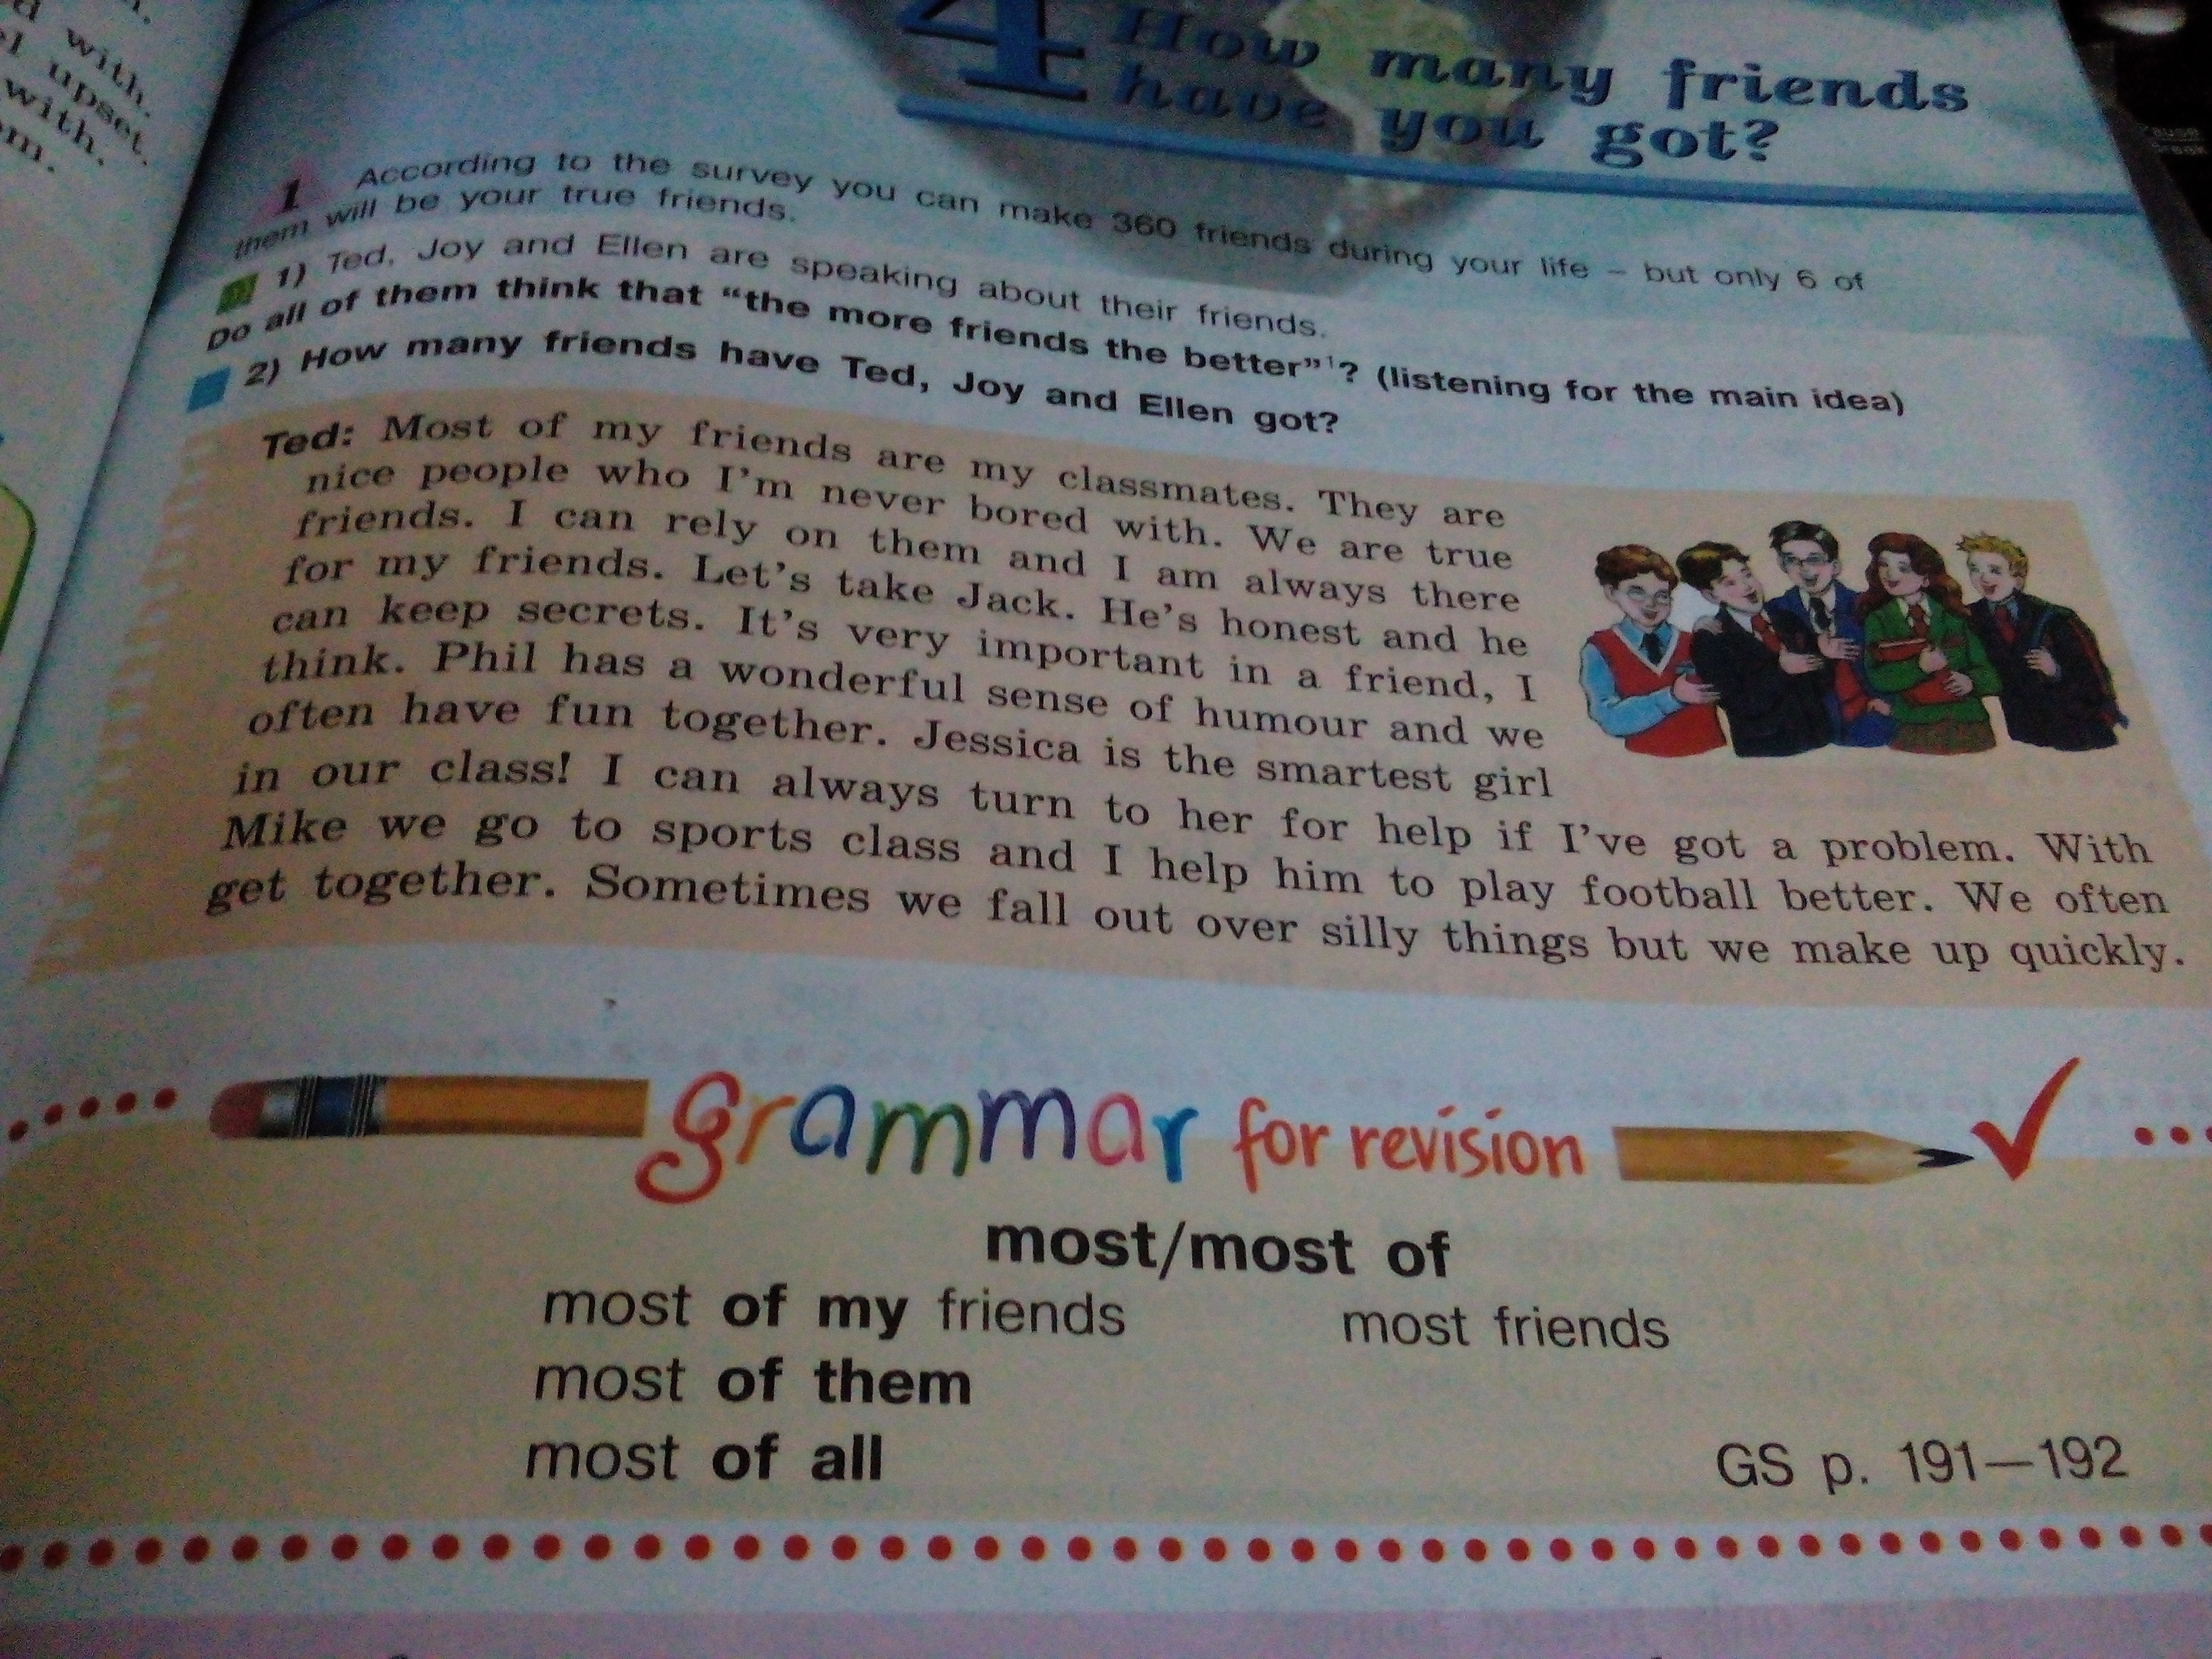 with.
upset.
with.
4 How many friends
have you got?
1 According to the survey you can make 360 friends during your life – but only 6 of
them will be your true friends.
1) Ted, Joy and Ellen are speaking about their friends.
Do all of them think that “the more friends the better”¹? (listening for the main idea)
2) How many friends have Ted, Joy and Ellen got?
Ted: Most of my friends are my classmates. They are
nice people who I’m never bored with. We are true
friends. I can rely on them and I am always there
for my friends. Let’s take Jack. He’s honest and he
can keep secrets. It’s very important in a friend, I
think. Phil has a wonderful sense of humour and we
often have fun together. Jessica is the smartest girl
in our class! I can always turn to her for help if I’ve got a problem. With
Mike we go to sports class and I help him to play football better. We often
get together. Sometimes we fall out over silly things but we make up quickly.
grammar for revision
most/most of
most of my friends most friends
most of them
most of all
GS p. 191—192
Pause
Break